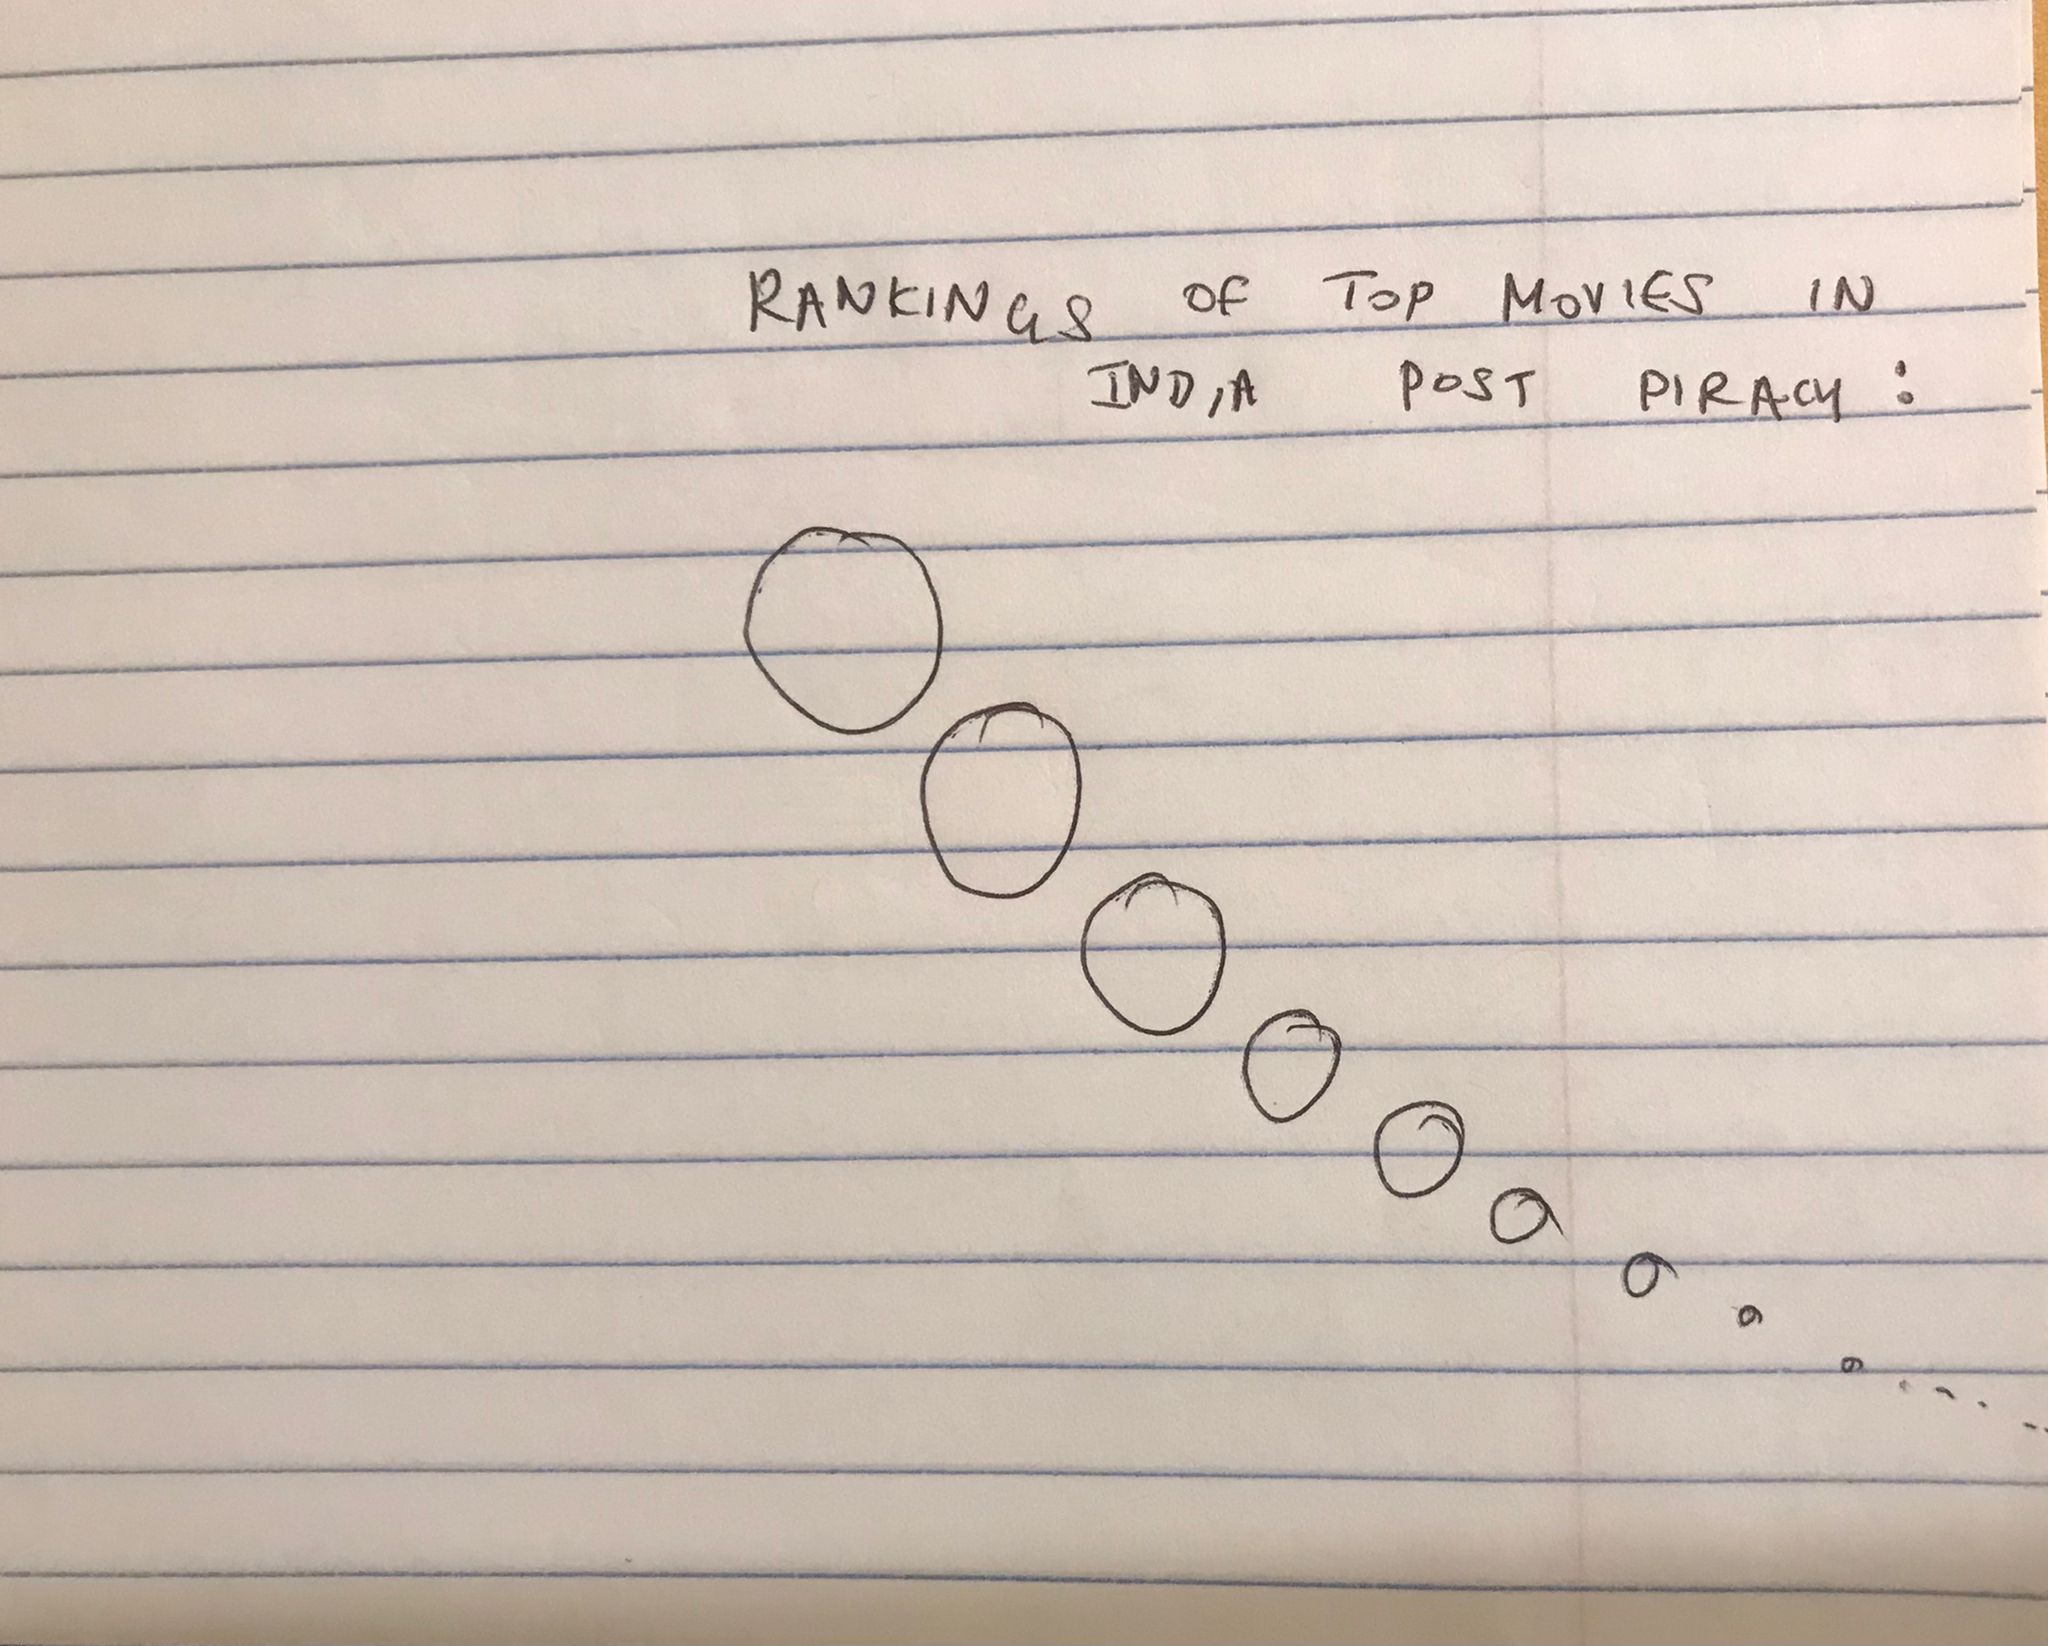 RANKINGS OF TOP MOVIES IN
INDIA POST PIRACY: